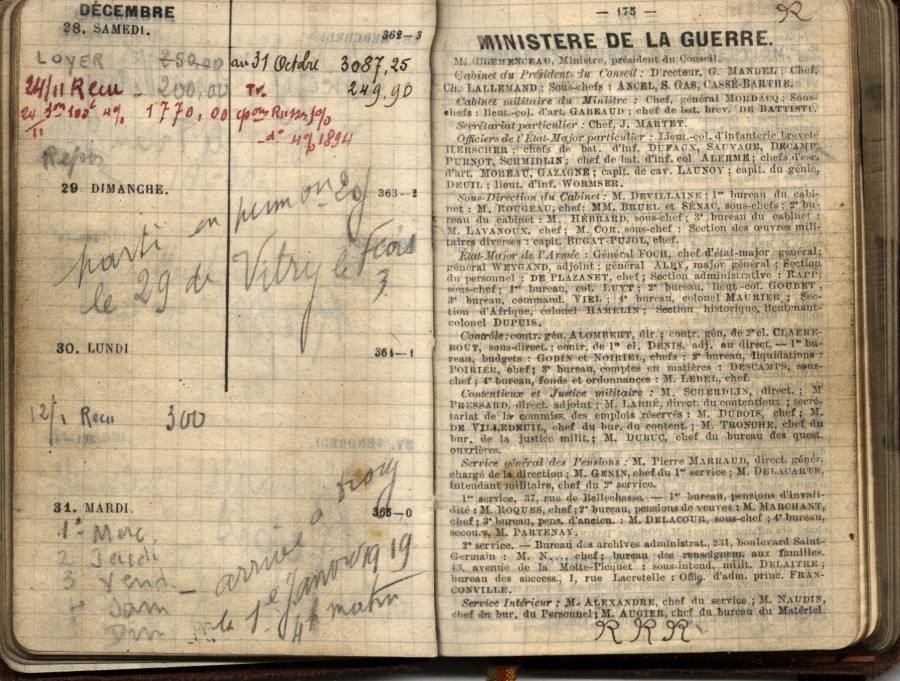 DÉCEMBRE
28. SAMEDI.
362-3
LOYER 250,00 au 31 Octobre 3087,25
24/11 Recu - 200,00 Tr. 249,90
1770,00
4% 1894
29 DIMANCHE.
363-2
parti en perm
le 29 de Vitry le
30. LUNDI
364-1
12/1 Recu 300
31. MARDI.
365-0
1° Merc,
2 Jeudi
3 Vend.
4 Sam
Dim
arrivé à
le 1er Janvier 1919
4h matin
— 175 —
MINISTERE DE LA GUERRE.
M. CLEMENCEAU, Ministre, président du Conseil
Cabinet du Président du Conseil : Directeur, G. MANDEL ; Chef,
Ch. LALLEMAND : Sous-chefs : ANCEL, S. GAS, CASSÉ-BARTHE.
Cabinet militaire du Ministre : Chef, général MORDACQ ; Sous-
chefs : lieut.-col. d'art. GABEAUD ; chef de bat. brev. DE BATTISTI.
Secrétariat particulier : Chef, J. MARTET.
Officiers de l'État-Major particulier : Lieut.-col. d'infanterie breveté
HERSCHER ; chefs de bat. d'inf. DUFAUX, SAUVAGE, DECAMP,
PURNOT, SCHMIDLIN ; chef de bat. d'inf. col ALERME ; chefs d'esc.
d'art. MOREAU, GAZAGNE ; capit. de cav. LAUNOY ; capit. du génie,
DEUIL ; lieut. d'inf. WORMSER.
Sous-Direction du Cabinet : M. DEVILLAINE ; 1er bureau du cabi-
net : M. ROUGEAU, chef ; MM. BRUEL et SÉNAC, sous-chefs ; 2e bu-
reau du cabinet : M. HÉBRARD, sous-chef ; 3e bureau du cabinet :
M. LAVANOUX, chef ; M. COR, sous-chef : Section des œuvres mili-
taires diverses : capit. BUGAT-PUJOL, chef.
État-Major de l'Armée : Général FOCH, chef d'état-major général ;
général WEYGAND, adjoint ; général ALBY, major général ; Section
du personnel : DE PLAZANET, chef ; Section administrative : RAPP ;
sous-chef ; 1er bureau, col. LUYT ; 2e bureau, lieut-col. GOUBET ;
3e bureau, command. VIEL ; 4e bureau, colonel MAURIER ; Sec-
tion d'Afrique, colonel HAMELIN ; Section historique, lieutenant-
colonel DUPUIS.
Contrôle : contr. gén. ALOMBERT, dir. ; contr. gén. de 2e cl. CLAERE-
BOUT, sous-direct. ; contr. de 1re cl. DENIS, adj. au direct. — 1er bu-
reau, budgets : GODIN et NOIRIEL, chefs : 2e bureau, liquidations :
POIRIER, chef ; 3e bureau, comptes en matières : DESCAMPS, sous-
chef ; 4e bureau, fonds et ordonnances : M. LEBEL, chef.
Contentieux et Justice militaire : M. SCHERDLIN, direct. ; M
PRESSARD, direct. adjoint ; M. LABBÉ, direct. du contentieux ; secré-
tariat de la commiss. des emplois réservés : M. DUBOIS, chef ; M.
DE VILLEDEUIL, chef du bur. du content. ; M. TRONCHE, chef du
bur. de la justice milit. ; M. DUBUC, chef du bureau des quest.
ouvrières.
Service général des Pensions : M. Pierre MARRAUD, direct. génér.
chargé de la direction ; M. GENIN, chef du 1er service ; M. DELACARTE,
intendant militaire, chef du 2e service.
1er service, 37, rue de Bellechasse. — 1er bureau, pensions d'invali-
dité : M. ROQUES, chef ; 2e bureau, pensions de veuves : M. MARCHANT,
chef ; 3e bureau, pens. d'ancien. : M. DELACOUR, sous-chef ; 4e bureau,
secours, M. PARTENAY.
2e service. — Bureau des archives administrat., 231, boulevard Saint-
Germain : M. N..., chef ; bureau des renseignem. aux familles.
43, avenue de la Motte-Picquet : sous-intend. milit. DELAITRE ;
bureau des success., 1, rue Lacretelle : Offig. d'adm. princ. FRAN-
CONVILLE.
Service Intérieur : M. ALEXANDRE, chef du service ; M. NAUDIN,
chef du bur. du Personnel ; M. AUGIER, chef du bureau du Matériel